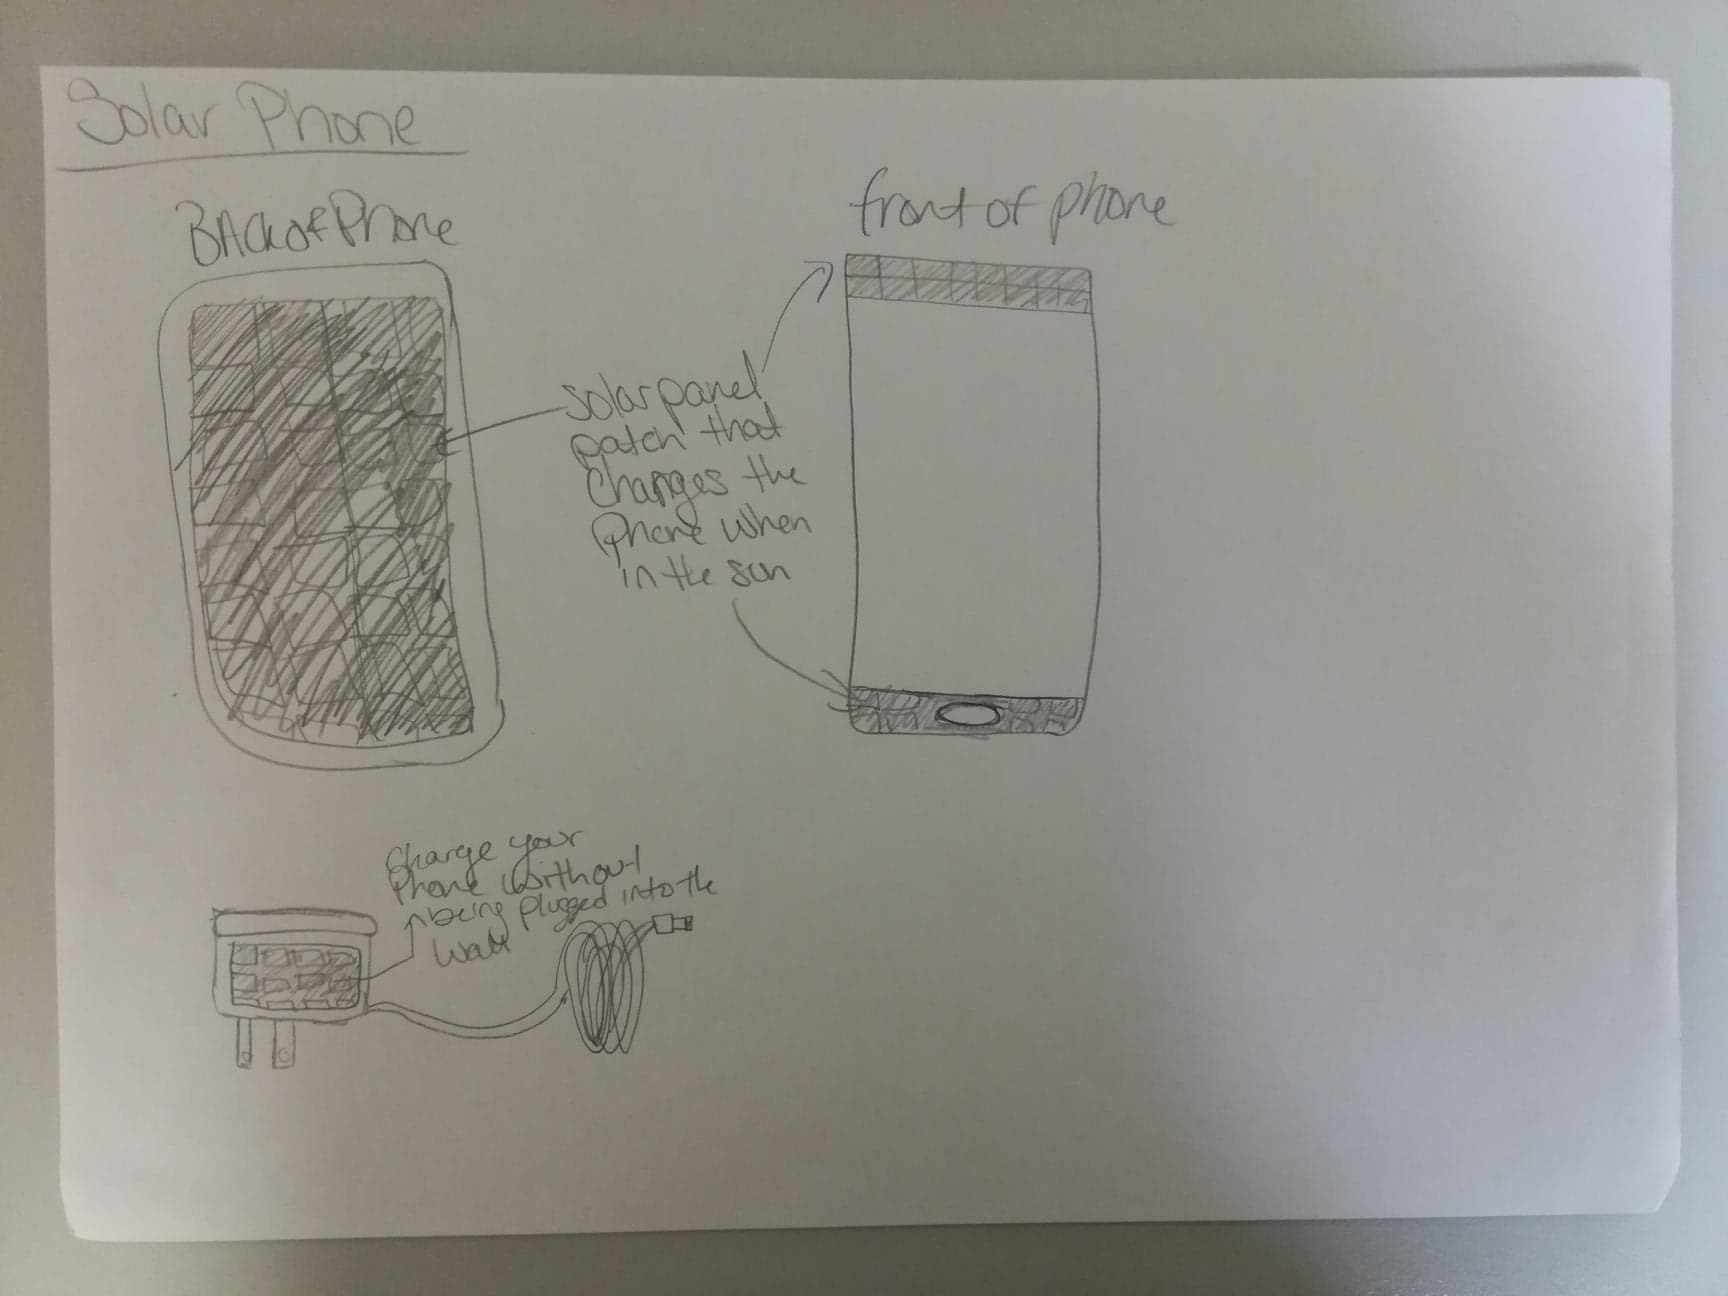 Solar Phone
Back of Phone
front of phone
solar panel
patch that
Charges the
Phone when
in the sun
Charge your
Phone without
being plugged into the
Wall